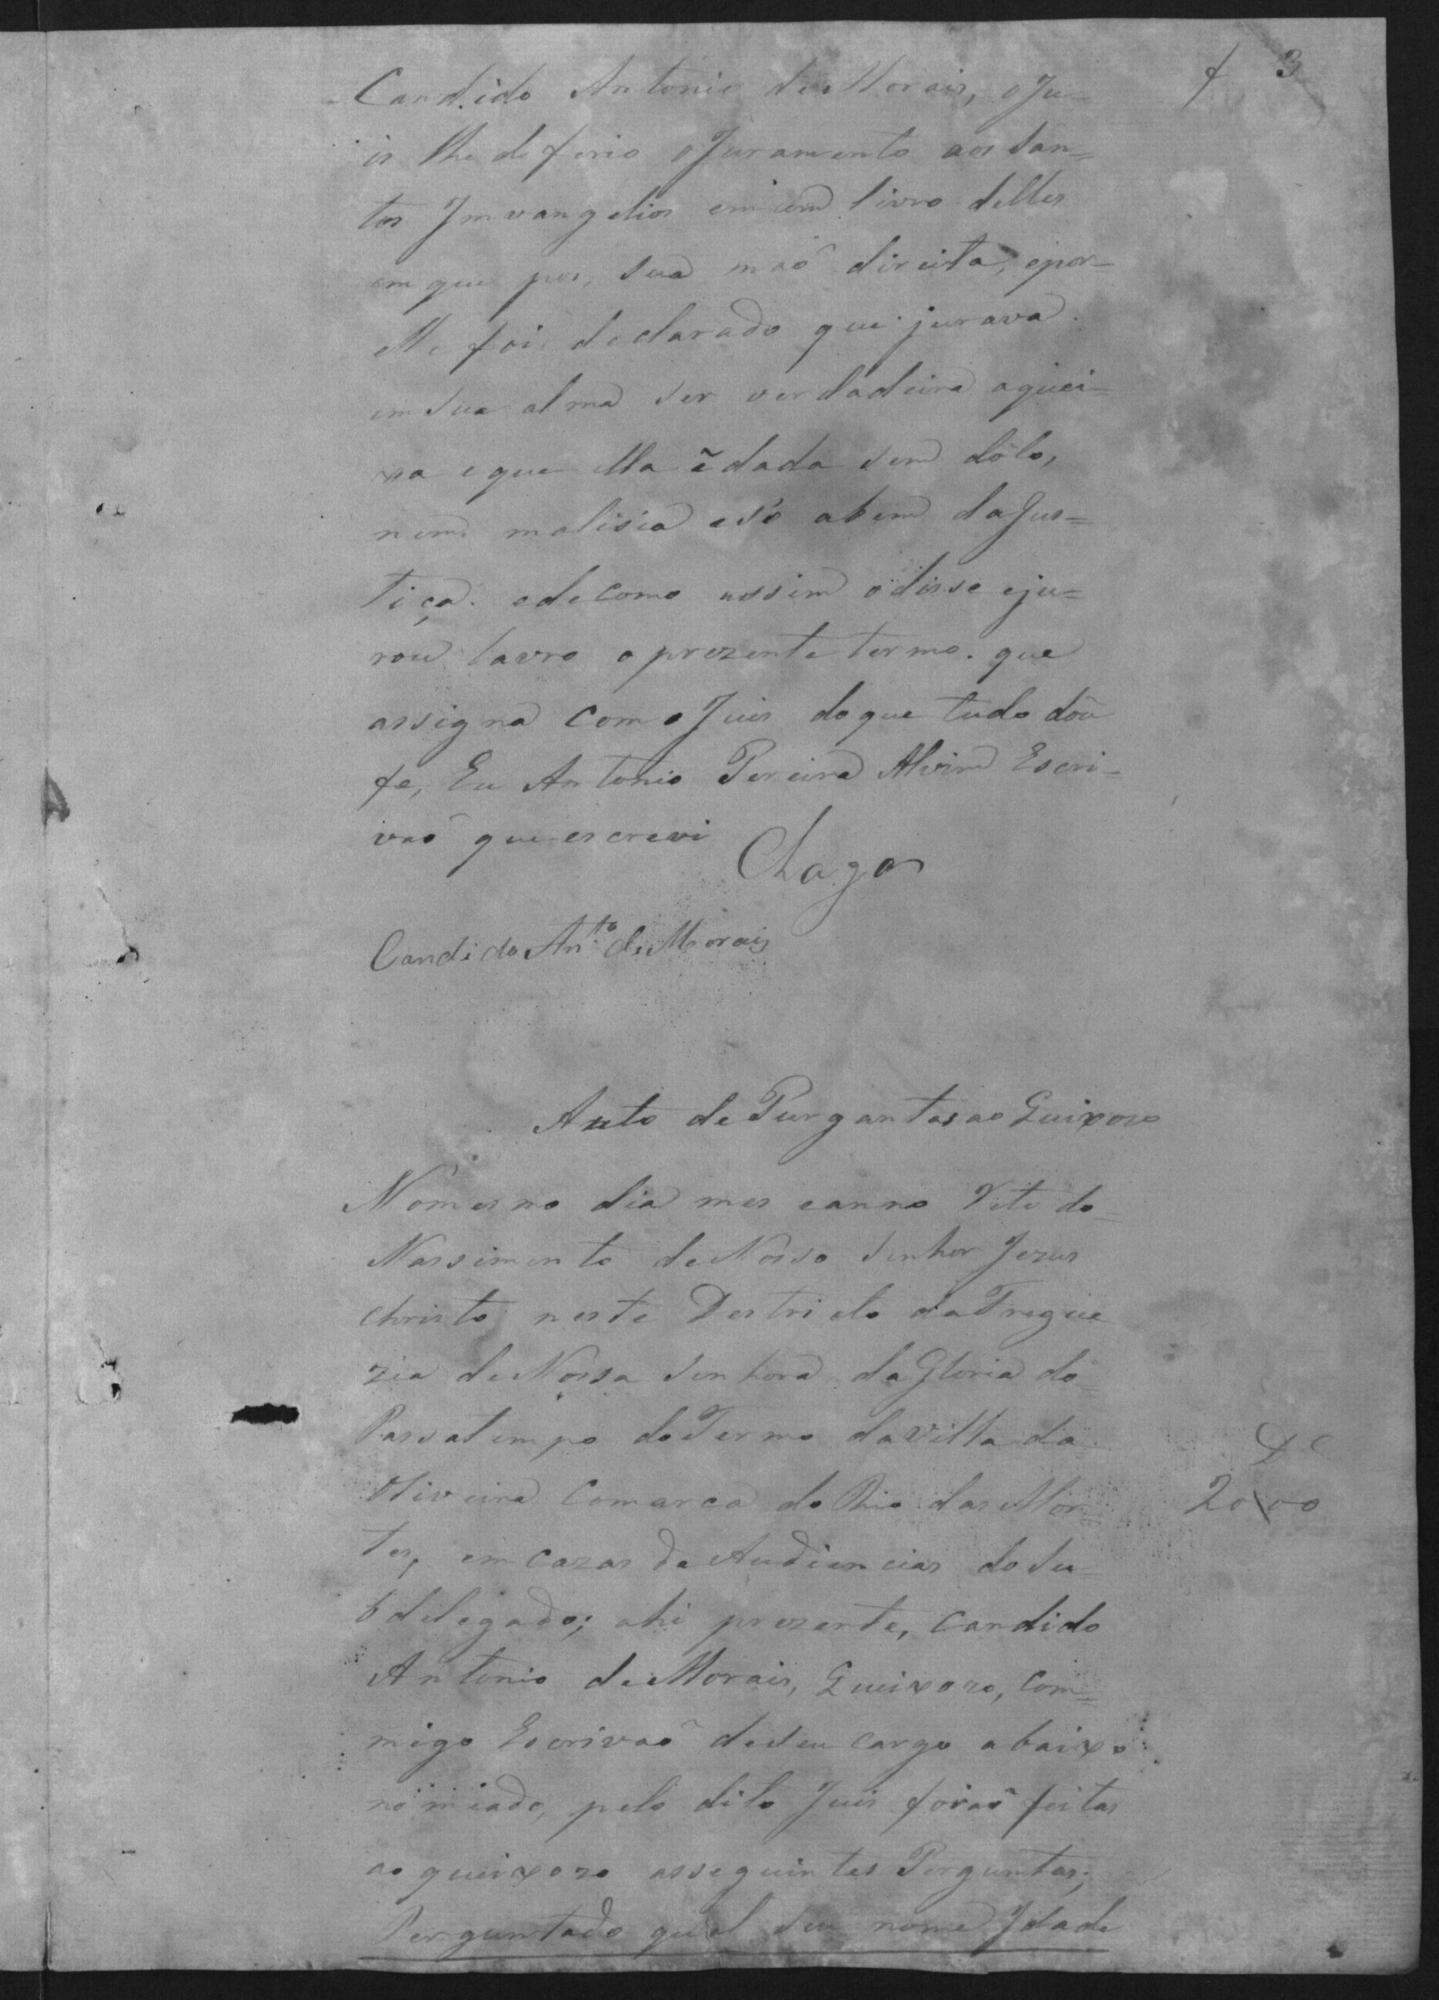 f 3
Candido Antonio de Morais, o Ju-
is lhe deferio o Juramento aos San=
tos Imvangelios em um livro delles
em que pos, sua maõ direita, epor-
elle foi declarado que jurava.
em sua alma ser verdadeira aquei-
xa eque ella ẽ dada sem dólo,
nem malisia esó abem da Jus=
tiça. edecomo assim odisse eju=
rou lavro o prezente termo. que
assigna com o Juis doque tudo dou
fe, Eu Antonio Pereira Alvim Escri-
vaõ que escrevi
Chagas
Candido An.to de Morais
Auto de Purguntas ao Queixozo
No mesmo dia mes eanno do
Nassimento de Nosso Senhor Jezus
Christo neste Destricto da Fregue
zia de Nossa Senhora da Gloria do
Passatempo do Termo da Villa da
Oliveira Comarca do Rio das Mor
tes, em cazas de Audiencias do Su-
bdelegado; ahi prezente, Candido
Antonio de Morais, Queixozo, com=
migo Escrivaõ de seu cargo abaixo
nomiado, pelo dito Juis foraõ feitas
ao queixozo asseguintes Perguntas;
Perguntado qual seu nome Idade
20